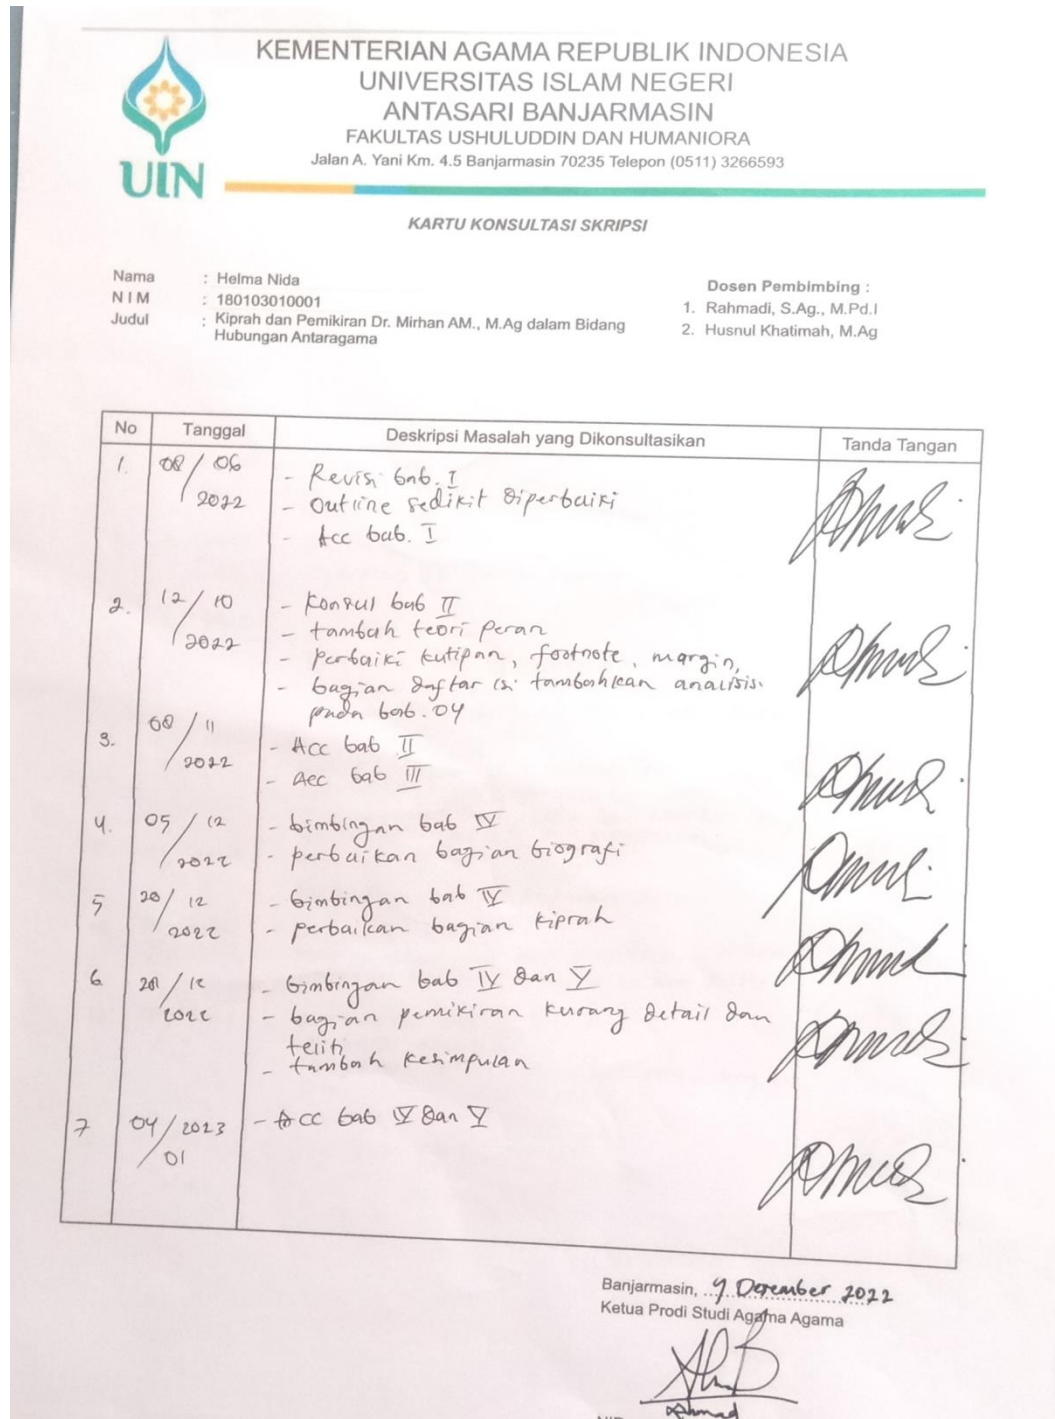 KEMENTERIAN AGAMA REPUBLIK INDONESIA
UNIVERSITAS ISLAM NEGERI
ANTASARI BANJARMASIN
FAKULTAS USHULUDDIN DAN HUMANIORA
Jalan A. Yani Km. 4.5 Banjarmasin 70235 Telepon (0511) 3266593
UIN
KARTU KONSULTASI SKRIPSI
Nama : Helma Nida
N I M : 180103010001
Judul : Kiprah dan Pemikiran Dr. Mirhan AM., M.Ag dalam Bidang
Hubungan Antaragama
Dosen Pembimbing :
1. Rahmadi, S.Ag., M.Pd.I
2. Husnul Khatimah, M.Ag
No Tanggal Deskripsi Masalah yang Dikonsultasikan Tanda Tangan
1. 08/06 2022 - Revisi bab. I
- Outline sedikit diperbaiki
- Acc bab. I
2. 12/10 2022 - Konsul bab II
- tambah teori peran
- perbaiki kutipan, footnote, margin,
- bagian daftar isi tambahkan analisis
pada bab. 04
3. 08/11 2022 - Acc bab II
- Acc bab III
4. 05/12 2022 - bimbingan bab IV
- perbaikan bagian biografi
5 20/12 2022 - bimbingan bab IV
- perbaikan bagian kiprah
6 /12 2022 - bimbingan bab IV dan V
- bagian pemikiran kurang detail dan
teliti
- tambah kesimpulan
7 04/2023 01 - Acc bab IV dan V
Banjarmasin, 9 Desember 2022
Ketua Prodi Studi Agama Agama
Ahmad